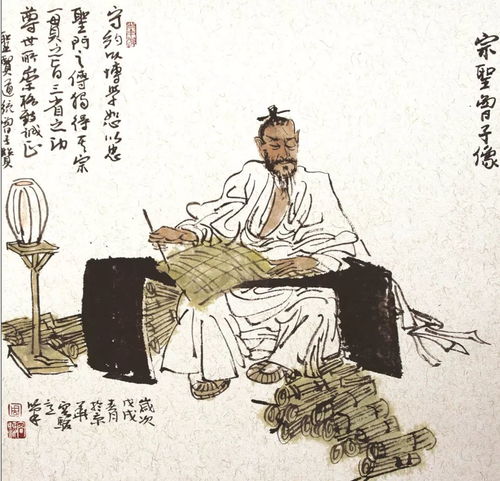 宗聖曾子像
守約以博學恕以忠
聖門之傳獨得其宗
一貫之旨三省之功
世所崇格致誠正
聖賢道統曾子贊
歲次
戊戌
於京
華